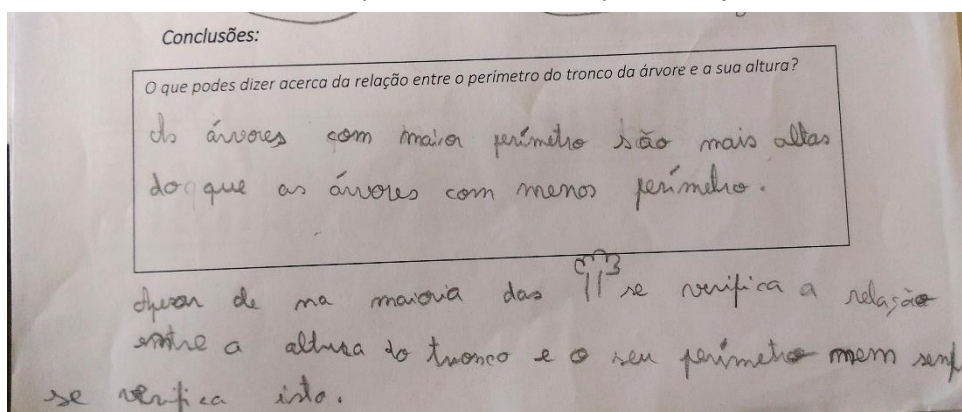 Conclusões:
O que podes dizer acerca da relação entre o perímetro do tronco da árvore e a sua altura?
As árvores com maior perímetro são mais altas
do que as árvores com menos perímetro.
Apesar de na maioria das se verifica a relação
entre a altura do tronco e o seu perímetro nem semp
se verifica isto.